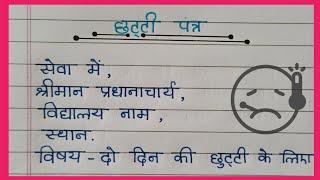 छुट्टी पत्र
सेवा में,
श्रीमान प्रधानाचार्य,
विद्यालय नाम,
स्थान.
विषय - दो दिन की छुट्टी के लिए